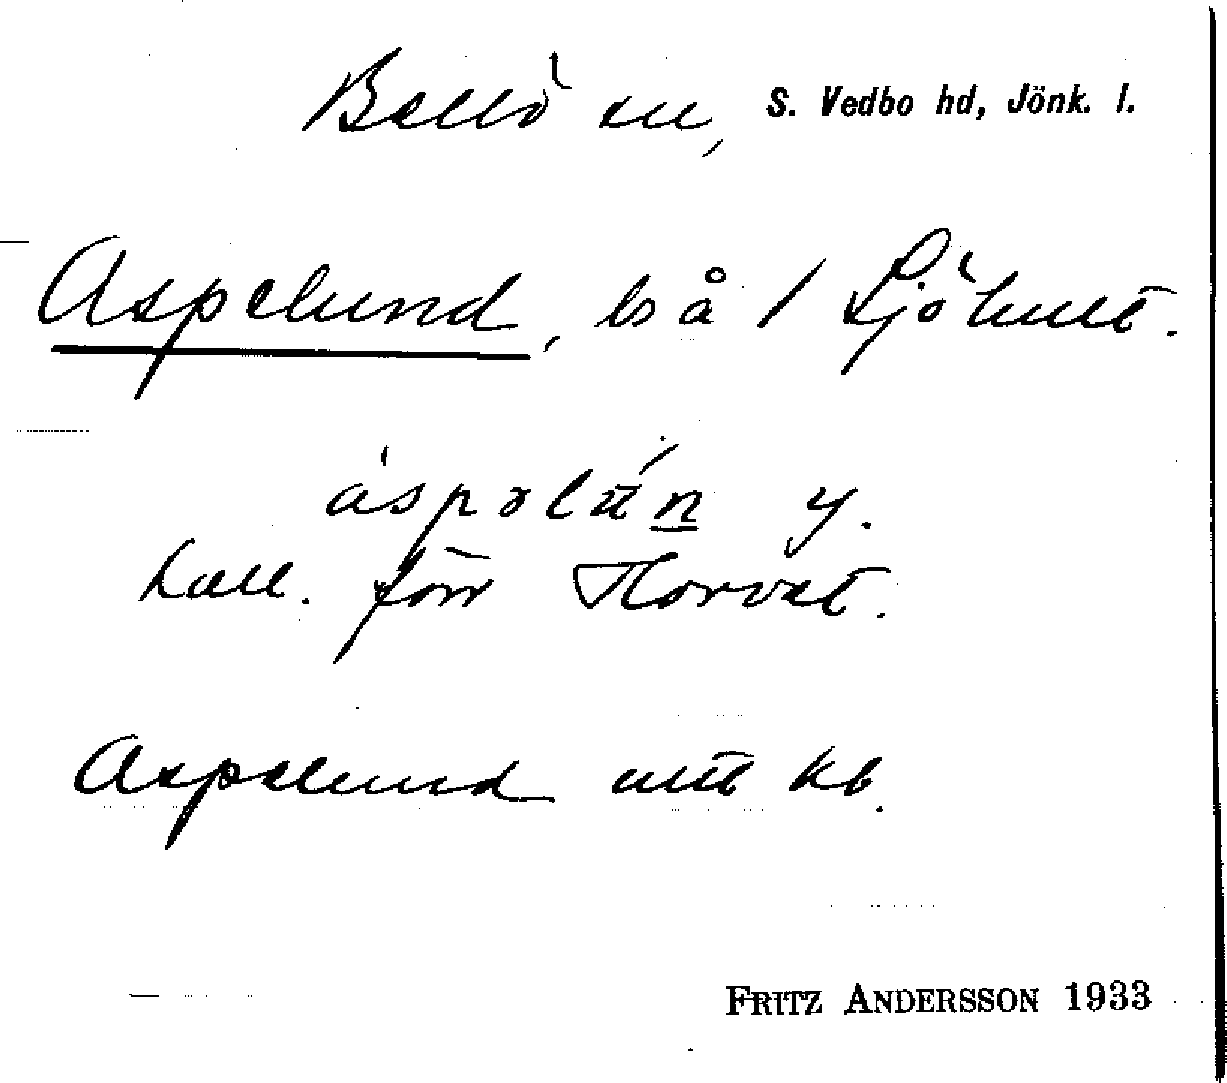 Bellö sn, S. Vedbo hd, Jönk. l.
Aspelund, ls å 1 Sjöhult.
áspəlu̇́n y.
kall. förr Horvet.
Aspelund utt kb.
FRITZ ANDERSSON 1933